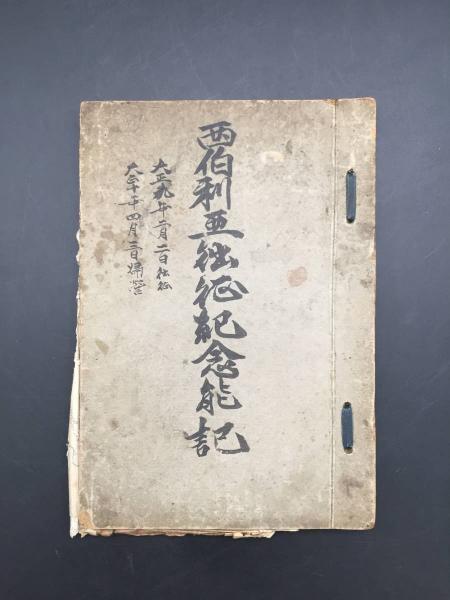 西伯利亜出征紀念能記
大正九年二月二日出征
大正十年四月三日帰營